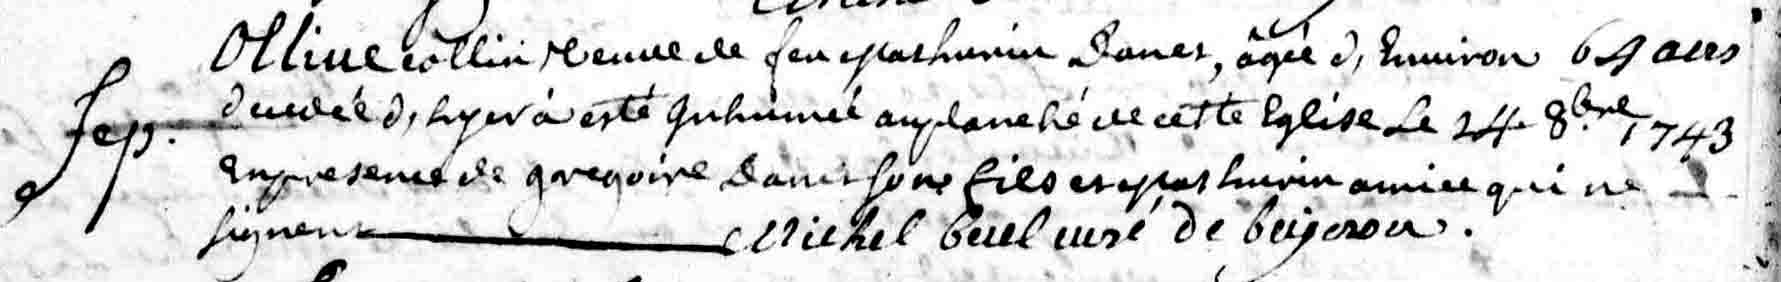 Ollive Collin, veuve de feu Mathurin Danet, âgée d'Environ 64 ans
sep. decedée d'hyer a esté Inhumée au planché de cette Eglise Le 24 8bre 1743
En presence de gregoire Danet son fils et Mathurin amice qui ne
signent Michel curé de